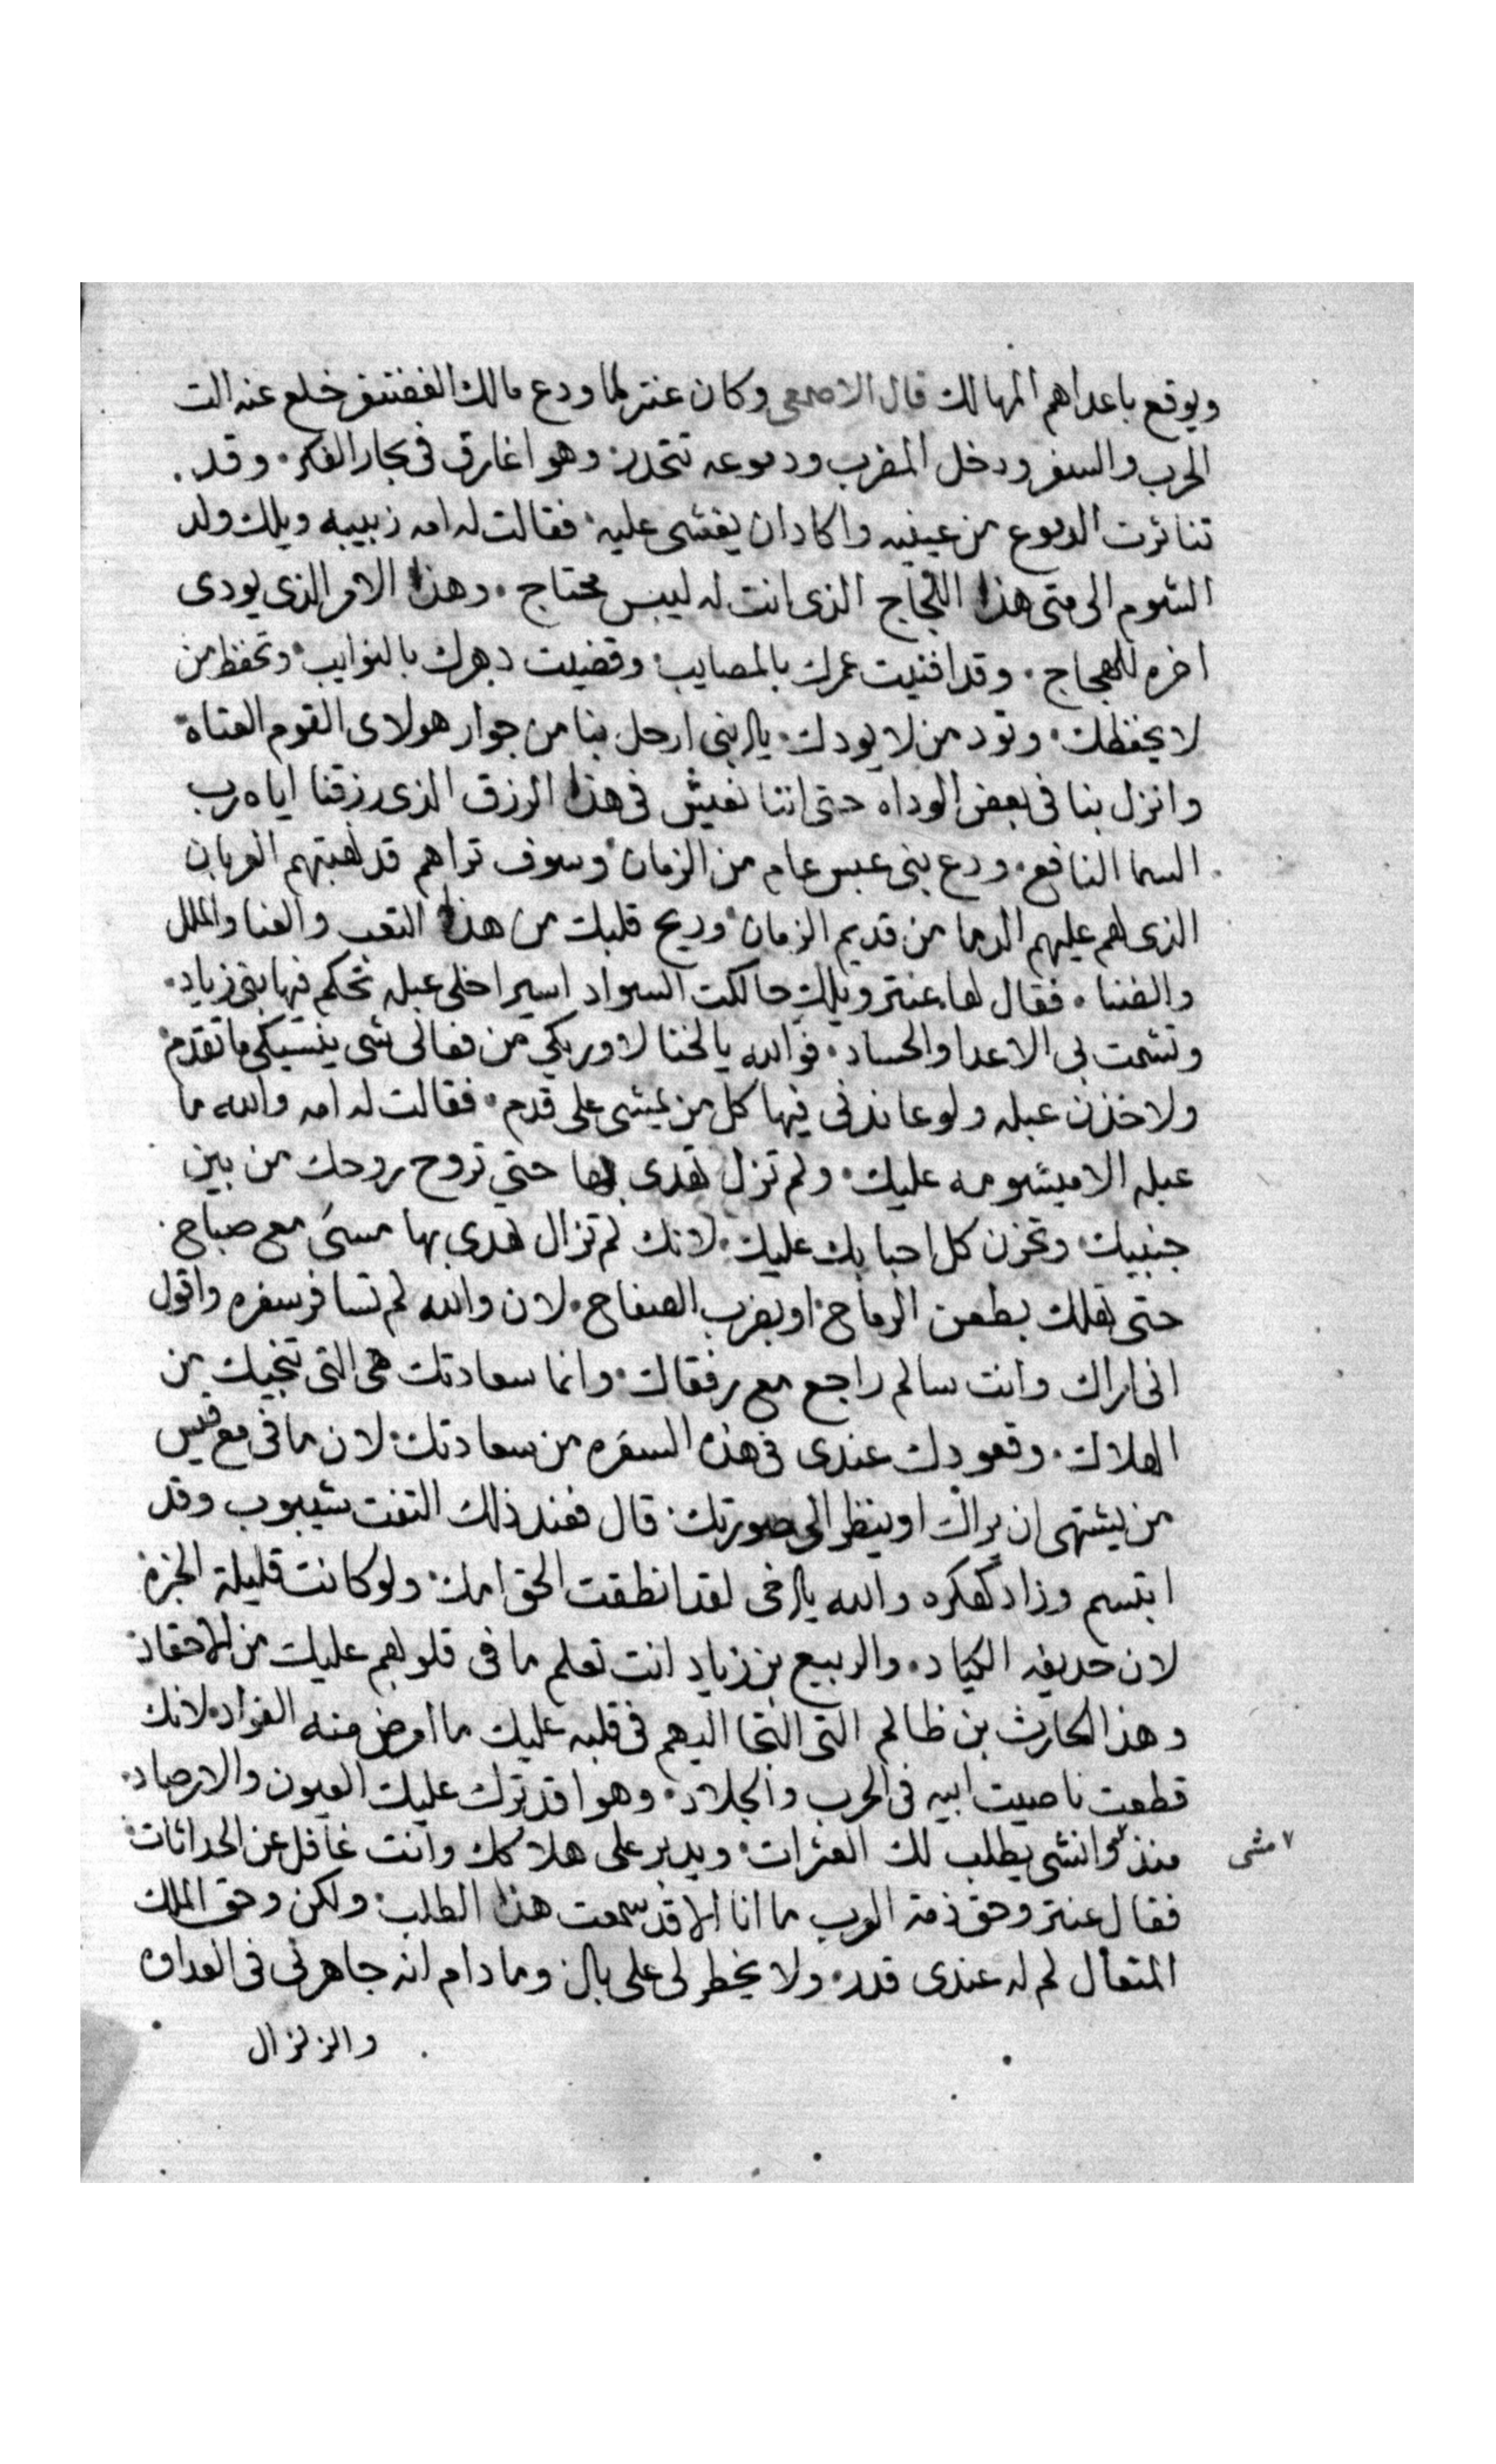 ويوقع باعداهم المهالك قال الاصمعى وكان عنتر لما ودع مالك الغضنفر خلع عنه الت
الحرب والسفر ودخل المضرب ودموعه تتحدر وهوا غارق فى بحار الفكر وقد
تناثرت الدموع من عينيه واكاد ان يغشى عليه فقالت له امه زبيبه ويلك ولد
الشوم الى متى هذا اللجاج الذى انت له ليس محتاج وهذا الامر الذى يودى
اخره للهجاج وقد افنيت عمرك بالمصايب وقضيت دهرك بالنوايب وتحفظ من
لا يحفظك وتود من لا يودك يا بنى ارحل بنا من جوار هولاى القوم العتاة
وانزل بنا فى بعض الوداه حتى اننا نعيش فى هذا الرزق الذى رزقنا اياه رب
السما النافع ودع بنى عبس عام من الزمان وسوف تراهم قد نهبتهم العربان
الذى لهم عليهم الدما من قديم الزمان وريح قلبك من هذا التعب والعنا والملل
والضنا فقال لها عنتر ويلك حالكت السواد اسير اخلى عبله تحكم فيها بنى زياد
وتشمت بى الاعدا والحساد فوالله يالخنا لاوريكى من فعالى شى ينسيكى ما تقدم
ولاخذن عبله ولو عاندنى فيها كل من يمشى على قدم فقالت له امه والله ما
عبله الا ميشومه عليك ولم تزل تهدى بها حتي تروح روحك من بين
جنبيك وتحزن كل احبابك عليك لانك لم تزال تهدى بها مسى مع صباح
حتى تهلك بطعن الرماح او بضرب الصفاح لان والله لم تسافر سفره واقول
انى اراك وانت سالم راجع مع رفقاك وانما سعادتك هى التى تنجيك من
الهلاك وقعودك عندى فى هذه السفره من سعادتك لان ما فى مع قيس
من يشتهى ان يراك او ينظر الى صورتك قال فعند ذلك التفت شيبوب وقد
ابتسم وزاد فكره والله يا اخى لقد انطقت الحق امك ولو كانت قليلة الخبره
لان حديفه الكياد والربيع بن زياد انت تعلم ما فى قلوبهم عليك من الاحقاد
وهذا الحارث بن ظالم التى التجا اليهم فى قلبه عليك ما امرض منه الفواد لانك
قطعت ناصيت ابيه فى الحرب والجلاد وهوا قد ترك عليك العيون والارصاد
منذ وانشى يطلب لك العثرات ويدبر على هلاكك وانت غافل عن الحداثات
مشى
فقال عنتر وحق ذمة العرب ما انا الا قد سمعت هذا الطلب ولكن وحق الملك
المتعال لم له عندى قدر ولا يخطر لى على بال وما دام انه جاهرنى فى العداوه
والزلزال